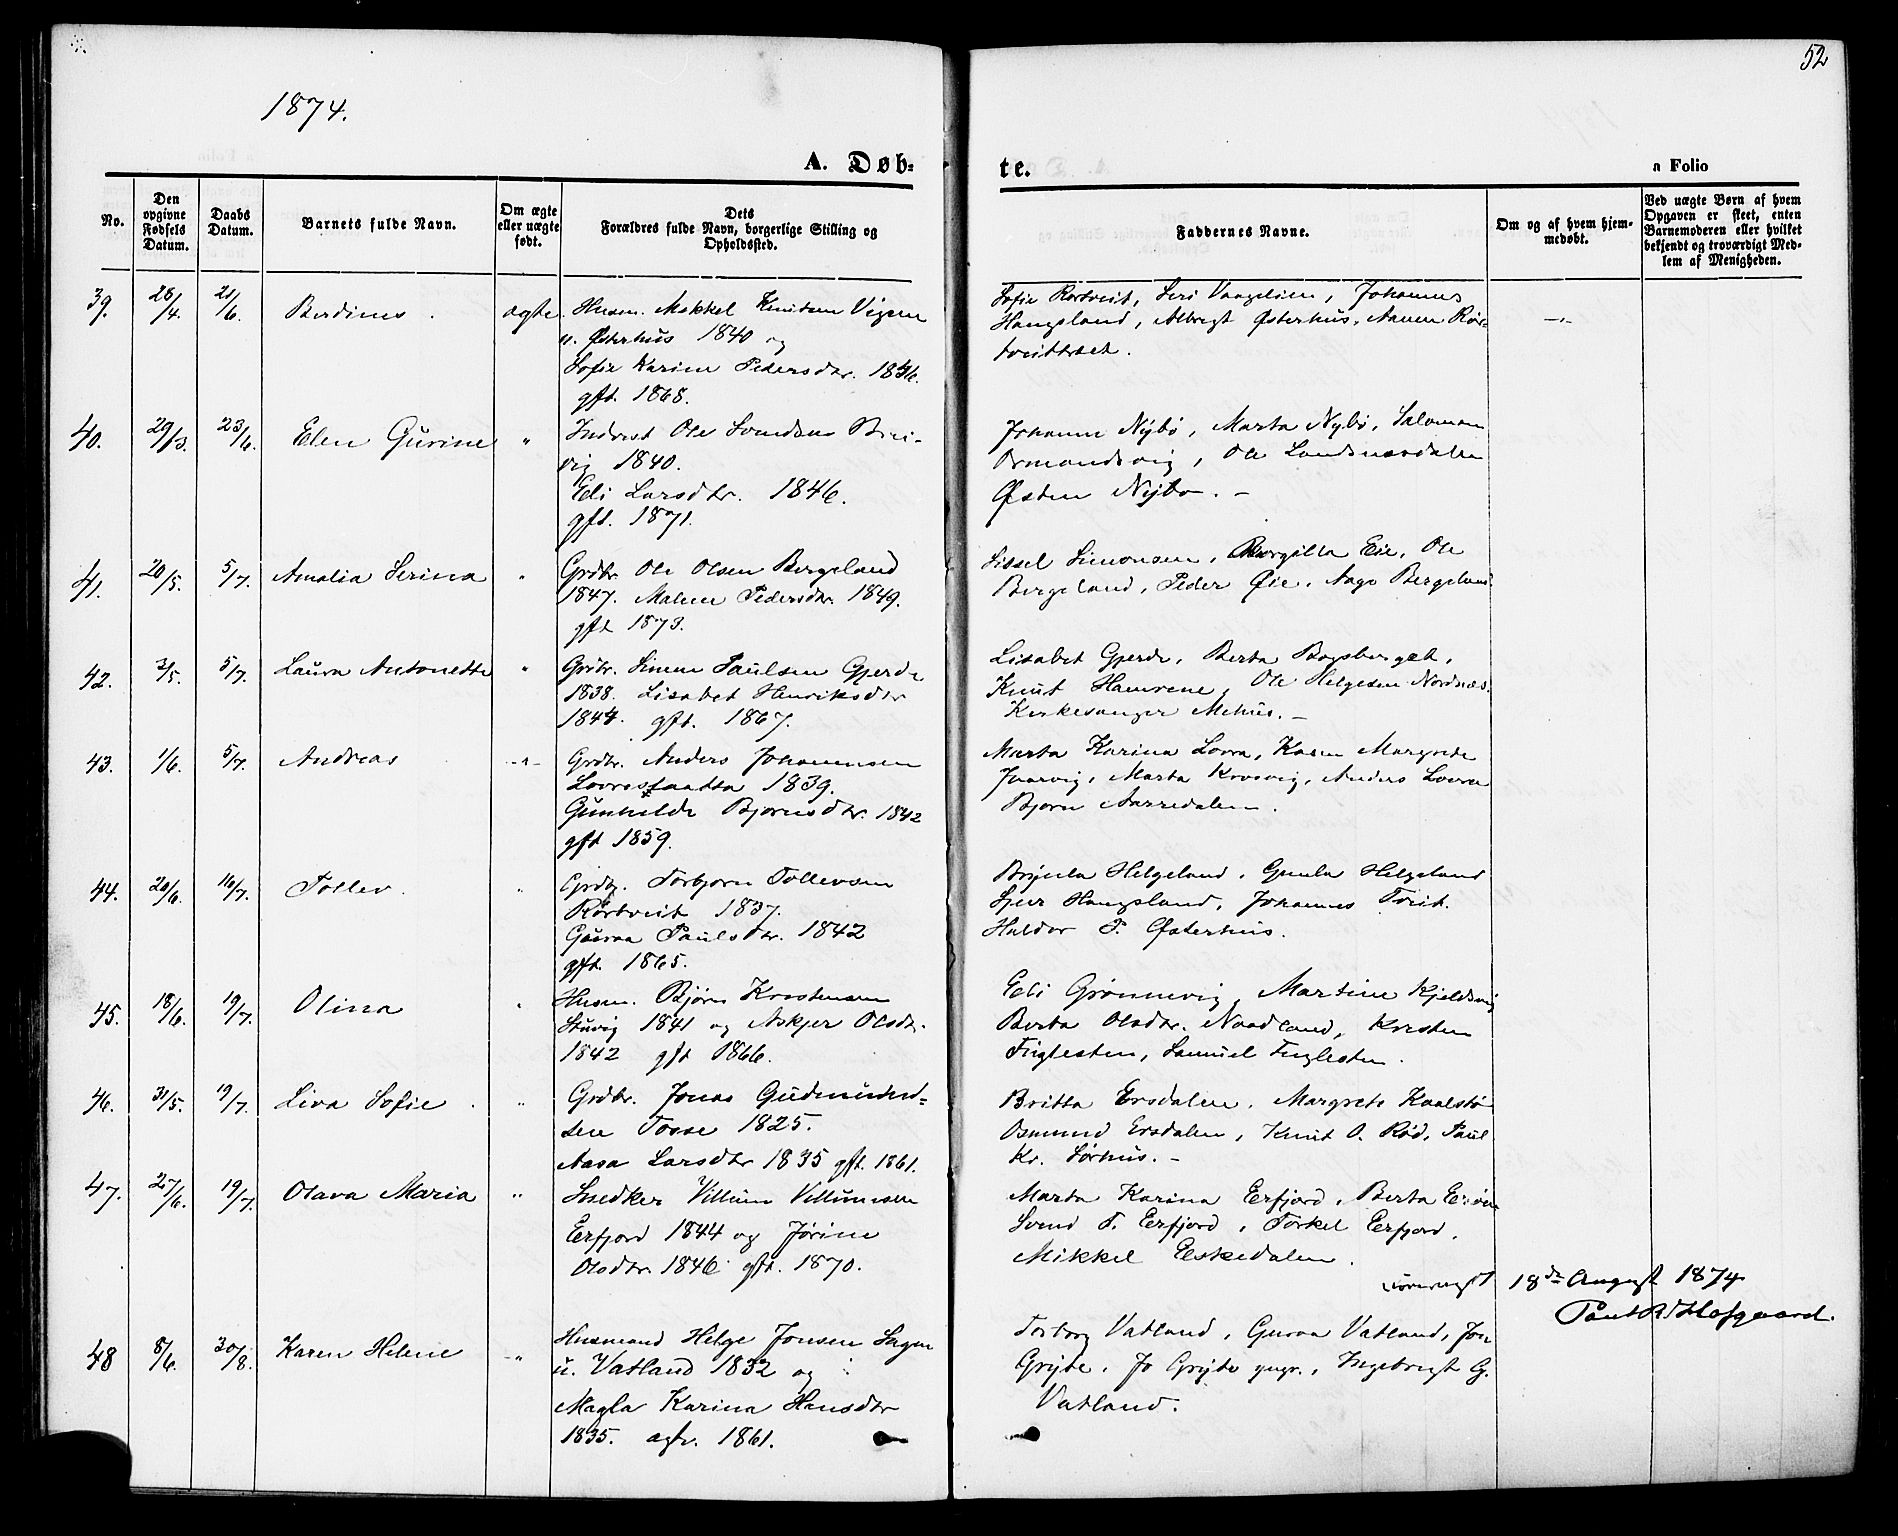 52
1874.
A. Døb=
te.
a Folio
No.
Den opgivne Fødsels Datum.
Daabs Datum.
Barnets fulde Navn.
Om ægte eller uægte født.
Dets Forældres fulde Navn, borgerlige Stilling og Opholdssted.
Faddernes Navne.
Om og af hvem hjemmedøbt.
Ved uægte Børn af hvem Opgaven er skeet, enten Barnemoderen eller hvilket bekjendt og troværdigt Medlem af Menigheden.
39. 28/4. 21/6. Berdines. ægte. Husm. Mikkel Knudsen Vigen
u. Østerhus 1840 og
Sofie Karine Pedersdtr.
gft. 1868.
Sofie Rørtveit, Siri Vaagslien, Johannes
Haugsland, Albrigt Østerhus,
40. 29/3. 23/6. Elen Gurine " Indrest Ole Svendsen
vig 1840.
Eli Larsdtr. 1846.
gft. 1871.
Johanne Nybø, Marta Nybø, Salomon
Ormundsvig, Ole Landsnæsdalen
Østen Nybø. –
41. 20/5. 5/7. Amalia Serina " Grdbr. Ole Olsen Bergeland
1847. Malene Pedersdtr. 1849.
gft 1873.
Sissel Simonsen, Borgilla Eie, Ole
Bergeland, Peder Øie, Aage Bergeland
42. 3/5. 5/7. Laura Antonette " Grdbr. Simon Paulsen Gjerde
1838. Lisabet Henriksdtr
1844. gft. 1867.
Lisabet Gjerde, Berta Bogsberget,
Knut Hamrene, Ole Helgesen Nordnæs.
Kirkesanger Mehus. –
43. 1/6. 5/7. Andreas -"- Grdbr. Anders Johannesen
Lovrestaatta 1839.
Gunhilde Bjornsdtr. 1842
gft 1859.
Marta Karina Lovra, Karen Margrete
Ivarvig, Marta Krosvig, Anders Lovra
Bjorn Aarredalen.
44. 20/6. 16/7. Tollev. " Grdbr. Torbjorn Tollevsen
Rørtveit 1837.
Guroa Paulsdtr. 1842
gft. 1865.
Brynla Helgeland, Gunla Helgeland
Sjur Haugsland, Johannes Tveit.
Haldor P. Østerhus.
45. 18/6. 19/7. Olina " Husm. Bjørn Kristensen
Stuvig 1841 og Askjer Olsdtr.
1842 gft 1866.
Eli Grønnevig, Martine Kjeldsvig
Berta Olsdtr. Naadland, Kristen
Fuglesten, Samuel Fuglesten.
46. 31/5. 19/7. Liva Sofie. " Grdbr. Jonas Gudmund=
sen Tosse 1825.
Aasa Larsdtr 1835 gft. 1861.
Britta Ersdalen, Margrete Kaalstø
Osmund Ersdalen, Knut O. Rød, Paul
Kr. Sørhus. –
47. 27/6. 19/7. Olava Maria " Snedker Villum Villumsen
Erfjord 1844 og Jørine
Olsdtr. 1846 gft. 1870.
Marta Karina Erfjord, Berta
Svend T. Erfjord, Torkel Erfjord,
Mikkel Eskedalen.
18de August 1874
48 8/6. 30/8. Karen Helene -"- Husmand Helge Jonsen Hagen
u. Vatland 1832 og
Magla Karina Hansdtr
1835. 1861.
Torborg Vatland, Guroa Vatland, Jon
Gryte, Jo Gryte yngr., Ingebrigt G.
Vatland.